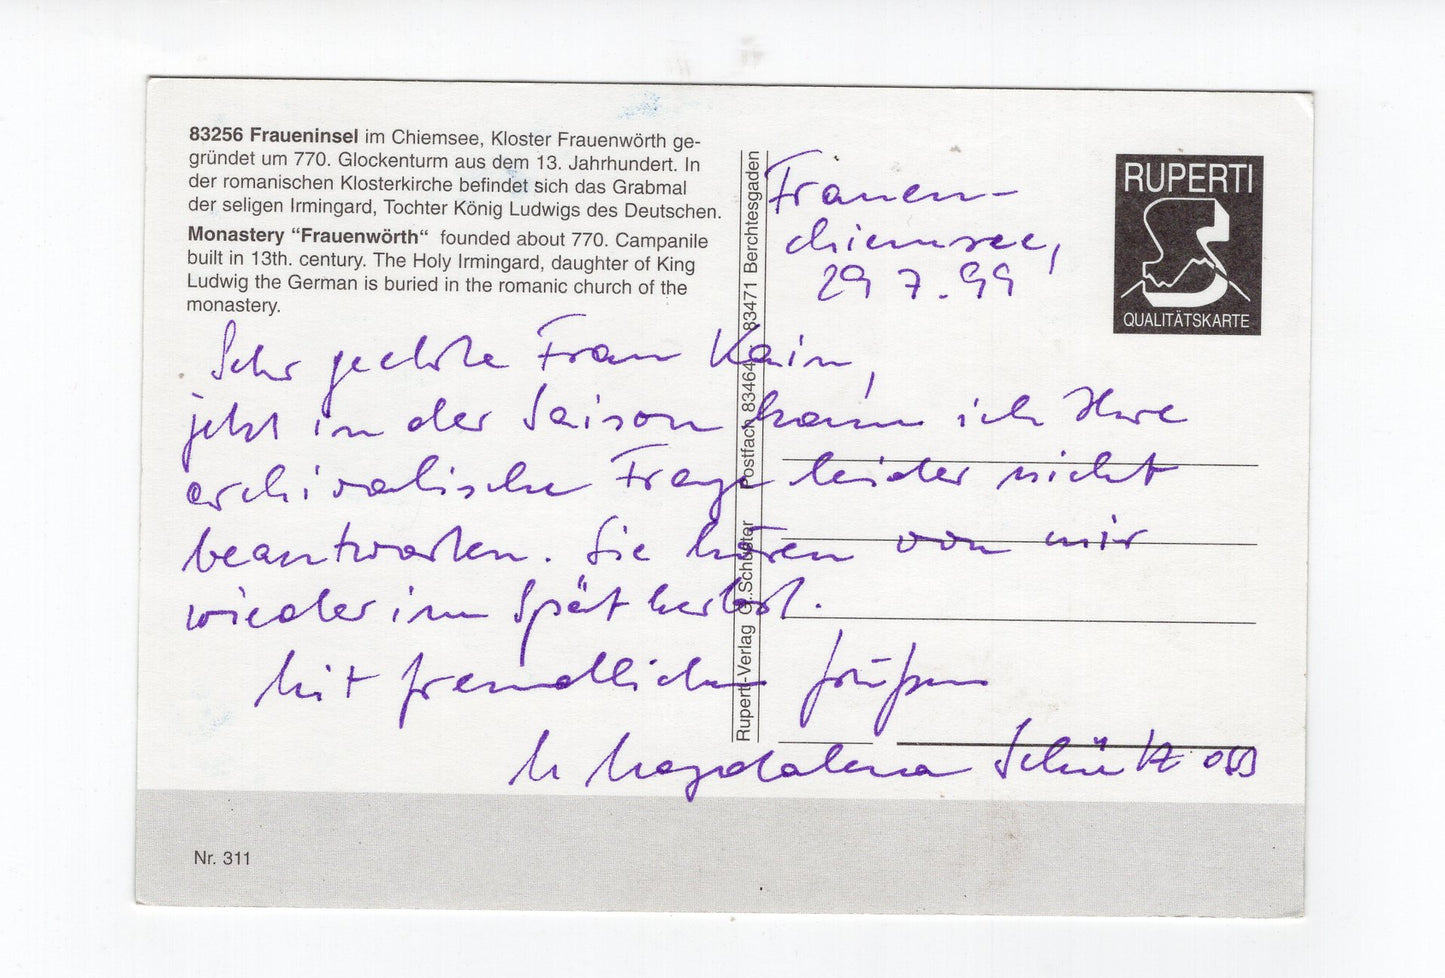 83256 Fraueninsel im Chiemsee, Kloster Frauenwörth ge-
gründet um 770. Glockenturm aus dem 13. Jahrhundert. In
der romanischen Klosterkirche befindet sich das Grabmal
der seligen Irmingard, Tochter König Ludwigs des Deutschen.
Monastery “Frauenwörth“ founded about 770. Campanile
built in 13th. century. The Holy Irmingard, daughter of King
Ludwig the German is buried in the romanic church of the
monastery.
Frauen-
chiemsee,
29 7.99
RUPERTI
QUALITÄTSKARTE
Sehr geehrte Frau Kain,
jetzt in der Saison kann ich Ihre
archivalische Frage leider nicht
beantworten. Sie hören von mir
wieder im Spätherbst.
Mit freundlichen Grüßen
M Magdalena Schütz OSB
Ruperti-Verlag G. Schuster Postfach 83464 83471 Berchtesgaden
Nr. 311